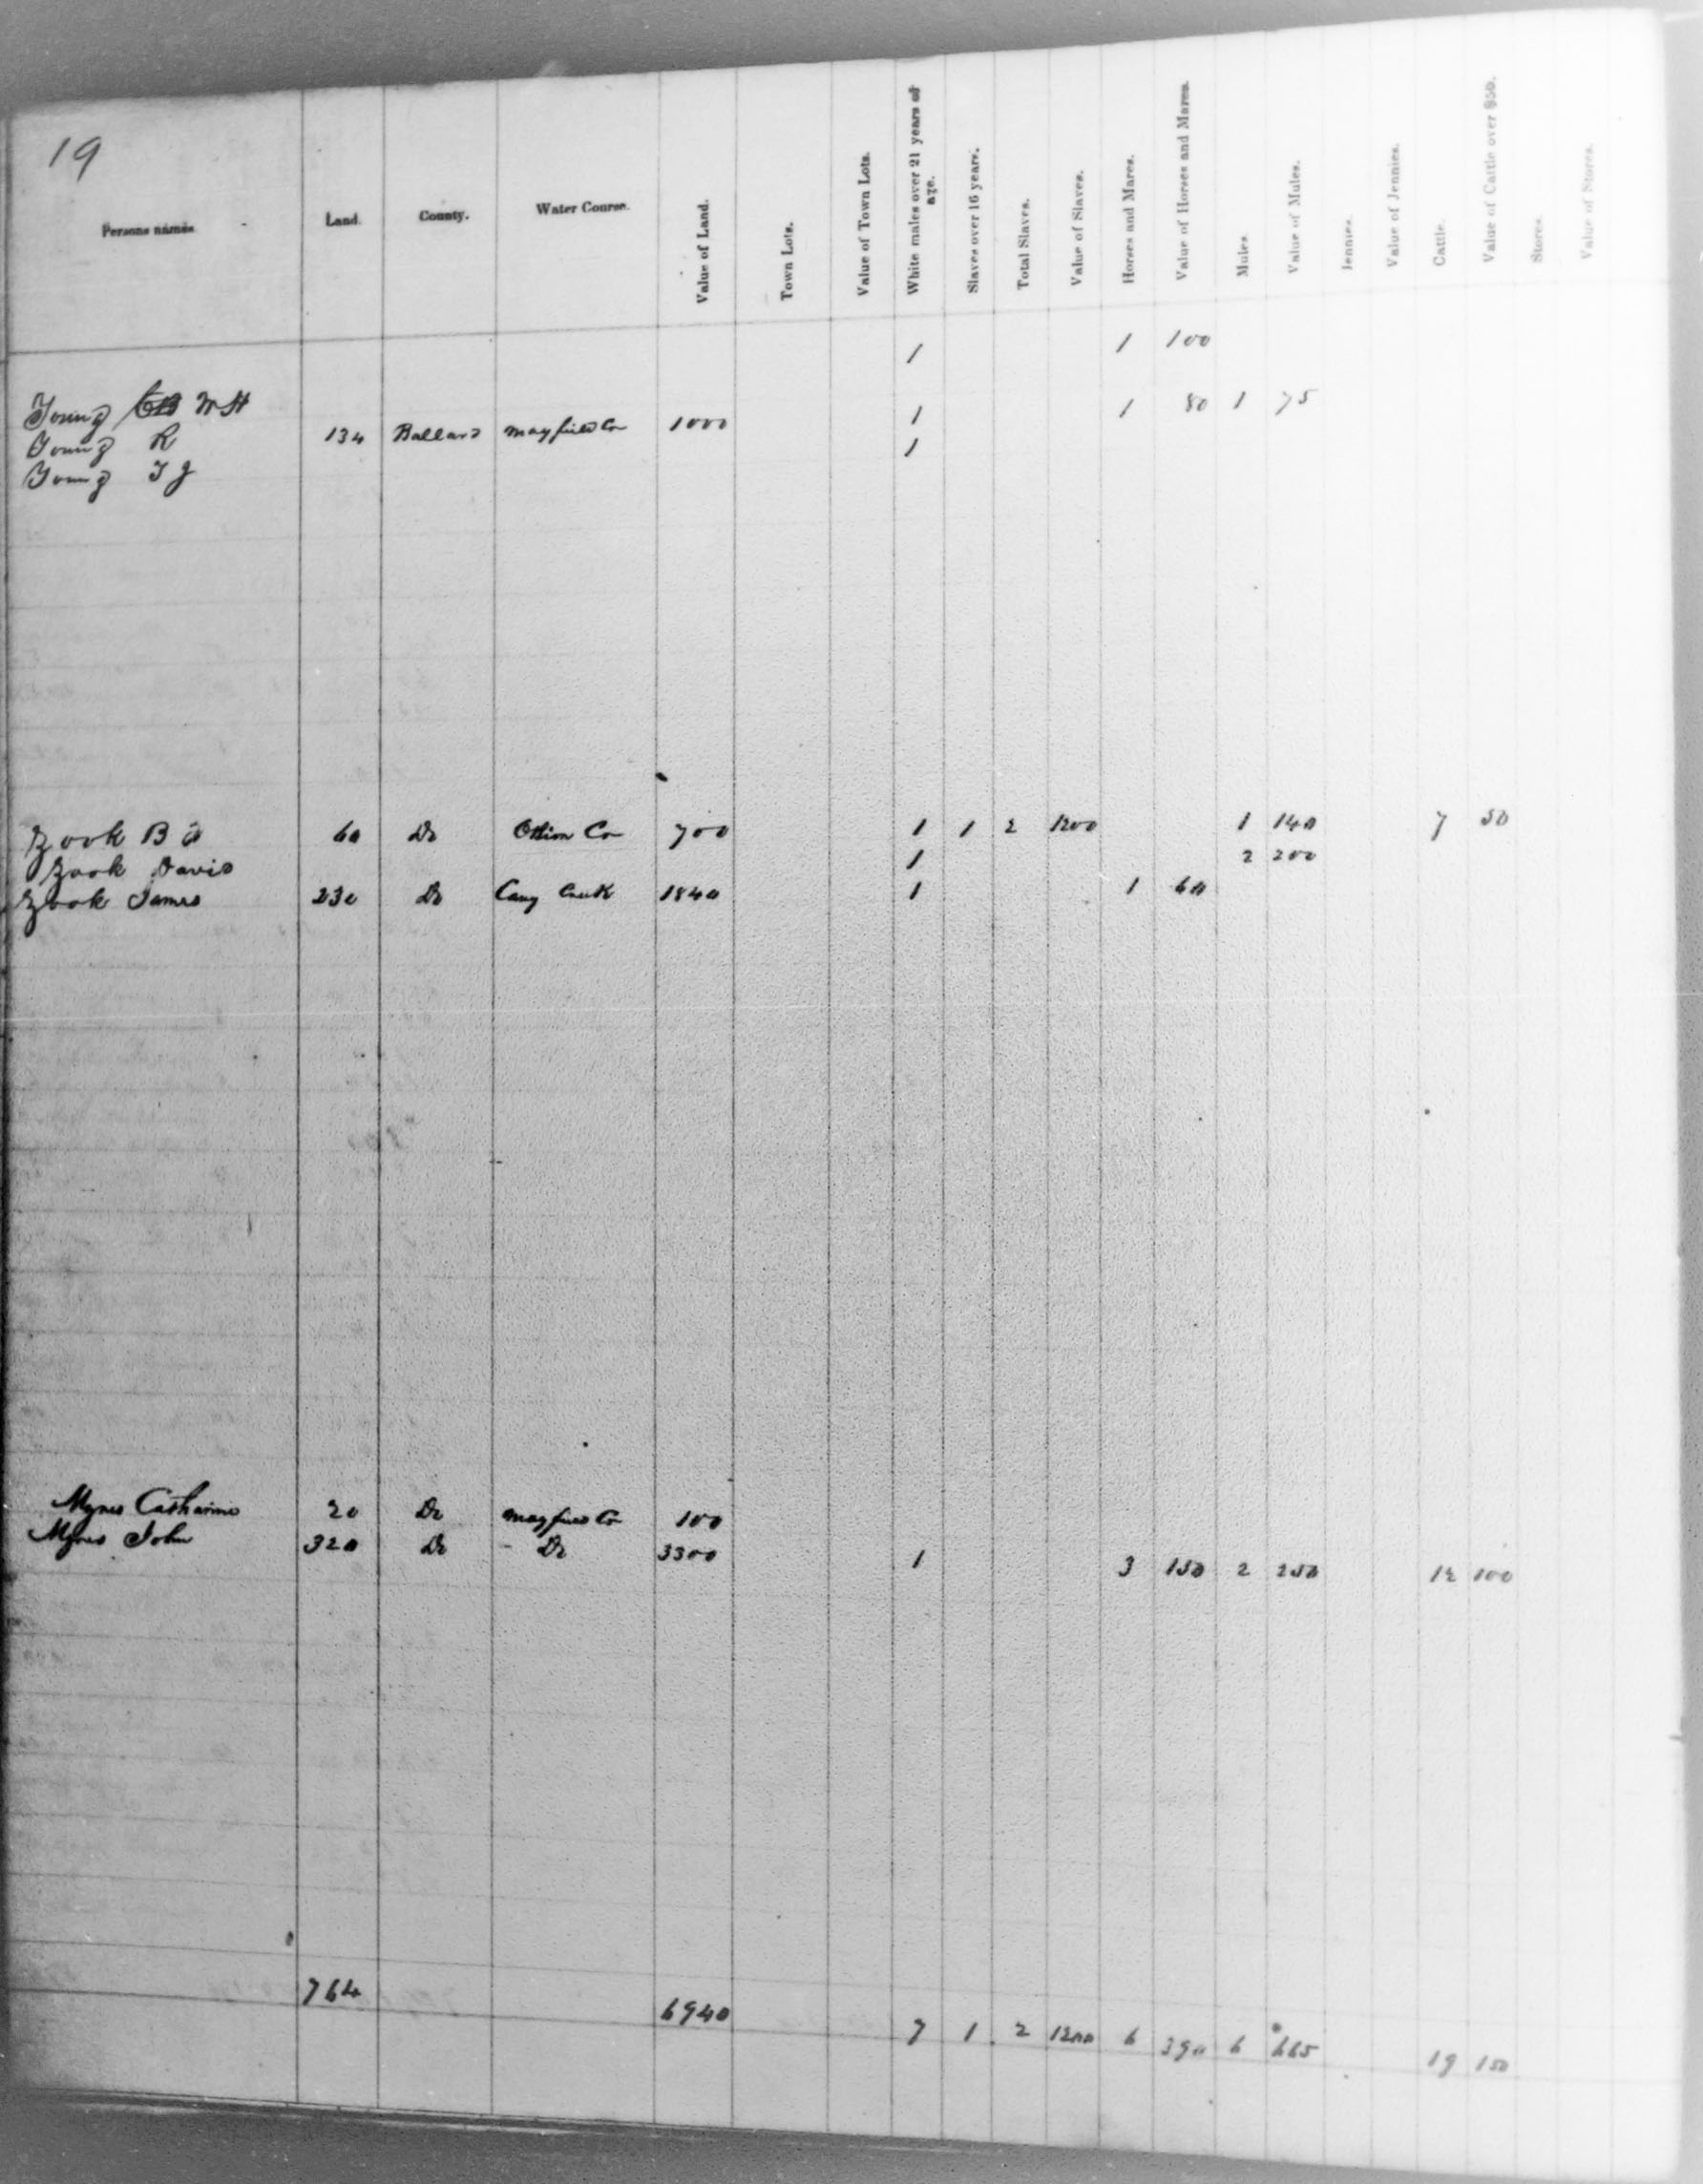 19
Persons names. Land. County. Water Course. Value of Land. Town Lots. Value of Town Lots. White males over 21 years of age. Slaves over 16 years. Total Slaves. Value of Slaves. Horses and Mares. Value of Horses and Mares. Mules. Value of Mules. Jennies. Value of Jennies. Cattle. Value of Cattle over $50. Stores. Value of Stores.
Young W H 1 1 100
Young R 134 Ballard Mayfield Cr 1000 1 1 80 1 75
Young T J 1
Zook B 60 Do Cr 700 1 1 2 1200 1 140 7 50
Zook Davis 1 2 200
Zook James 230 Do Cany Creek 1840 1 1 60
Mynes Catharine 20 Do Mayfield Cr 100
Mynes John 320 Do - Do 3300 1 3 150 2 250 12 100
764 6940 7 1 2 1200 6 390 6 665 19 150